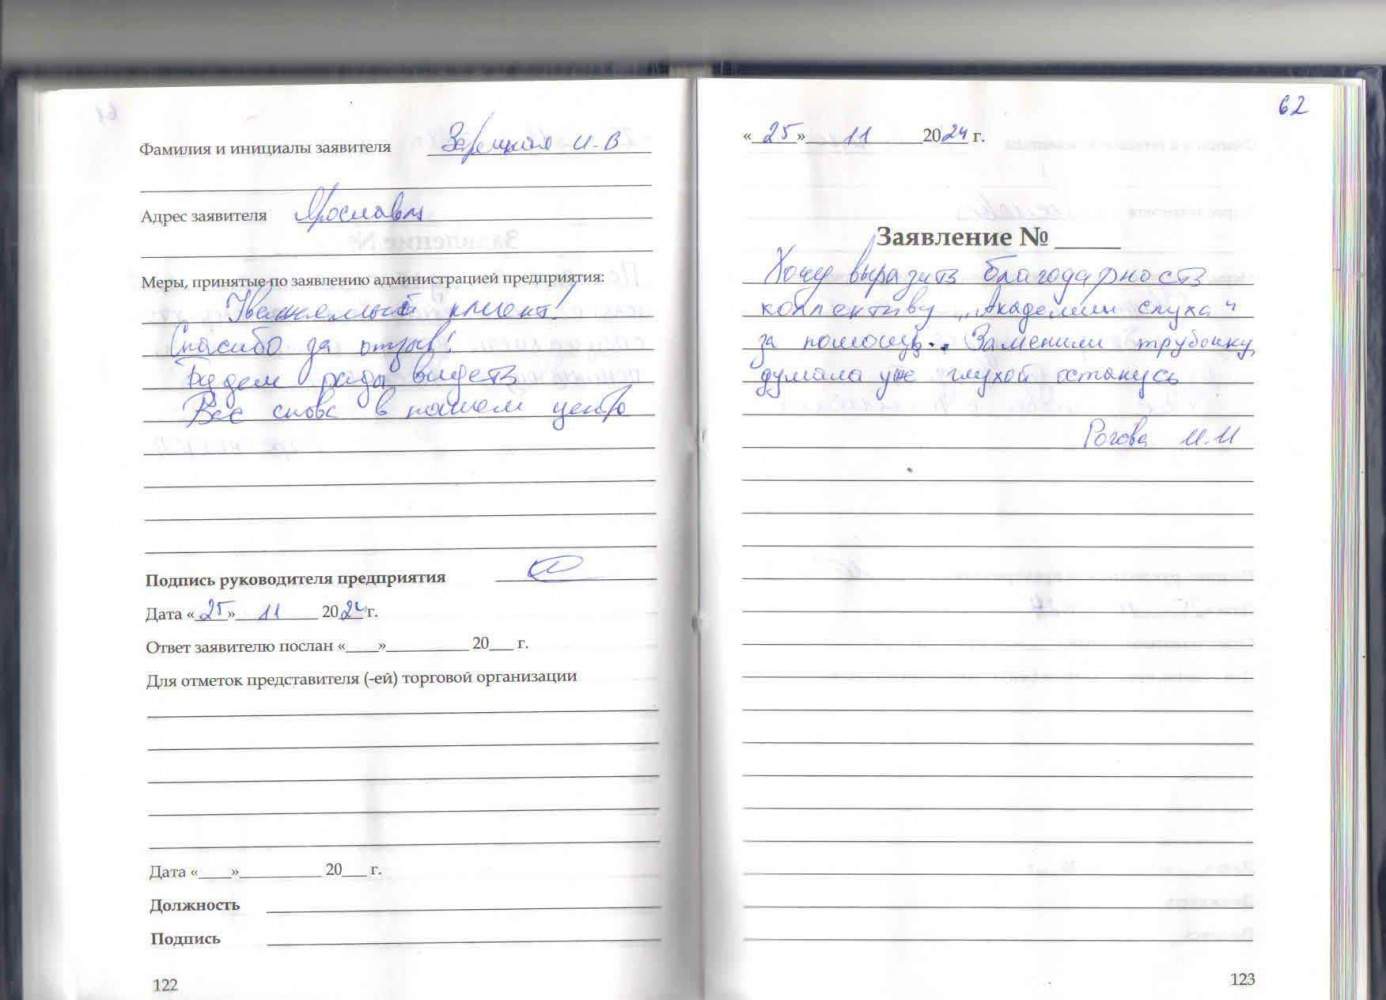 Фамилия и инициалы заявителя Зарецкая И.В
Адрес заявителя Ярославль
Меры, принятые по заявлению администрацией предприятия:
Уважаемый клиент!
Спасибо за отзыв!
Будем рады видеть
Вас снова в нашем центре
Подпись руководителя предприятия
Дата «25» 11 2024 г.
Ответ заявителю послан «____»__________ 20___ г.
Для отметок представителя (-ей) торговой организации
Дата «____»__________ 20___ г.
Должность
Подпись
122
62
«25» 11 2024 г.
Заявление № _____
Хочу выразить благодарность
коллективу „Академии слуха"
за помощь. Заменили трубочку,
думала уже глухой останусь
Рогова И.И
123